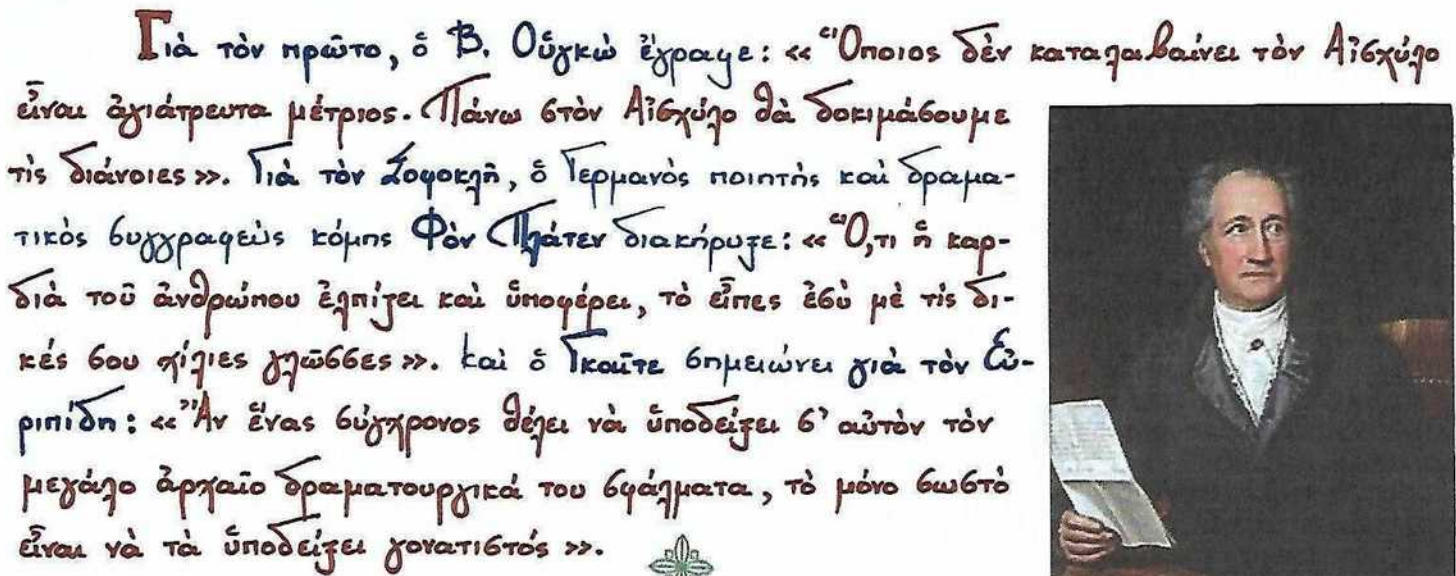 Γιὰ τὸν πρῶτο, ὁ Β. Οὑγκὼ ἔγραφε: «Ὅποιος δὲν καταλαβαίνει τὸν Αἰσχύλο
εἶναι ἀγιάτρευτα μέτριος. Πάνω στὸν Αἰσχύλο θὰ δοκιμάσουμε
τὶς διάνοιες». Γιὰ τὸν Σοφοκλῆ, ὁ Γερμανὸς ποιητὴς καὶ δραμα-
τικὸς συγγραφεὺς κόμης Φὸν Πλάτεν διακήρυξε: «Ὅ,τι ἡ καρ-
διὰ τοῦ ἀνθρώπου ἐλπίζει καὶ ὑποφέρει, τὸ εἶπες ἐσὺ μὲ τὶς δι-
κές σου χίλιες γλῶσσες». Καὶ ὁ Γκαῖτε σημειώνει γιὰ τὸν Εὐ-
ριπίδη: «Ἂν ἕνας σύγχρονος θέλει νὰ ὑποδείξει σ' αὐτὸν τὸν
μεγάλο ἀρχαῖο δραματουργικά του σφάλματα, τὸ μόνο σωστὸ
εἶναι νὰ τὰ ὑποδείξει γονατιστός».